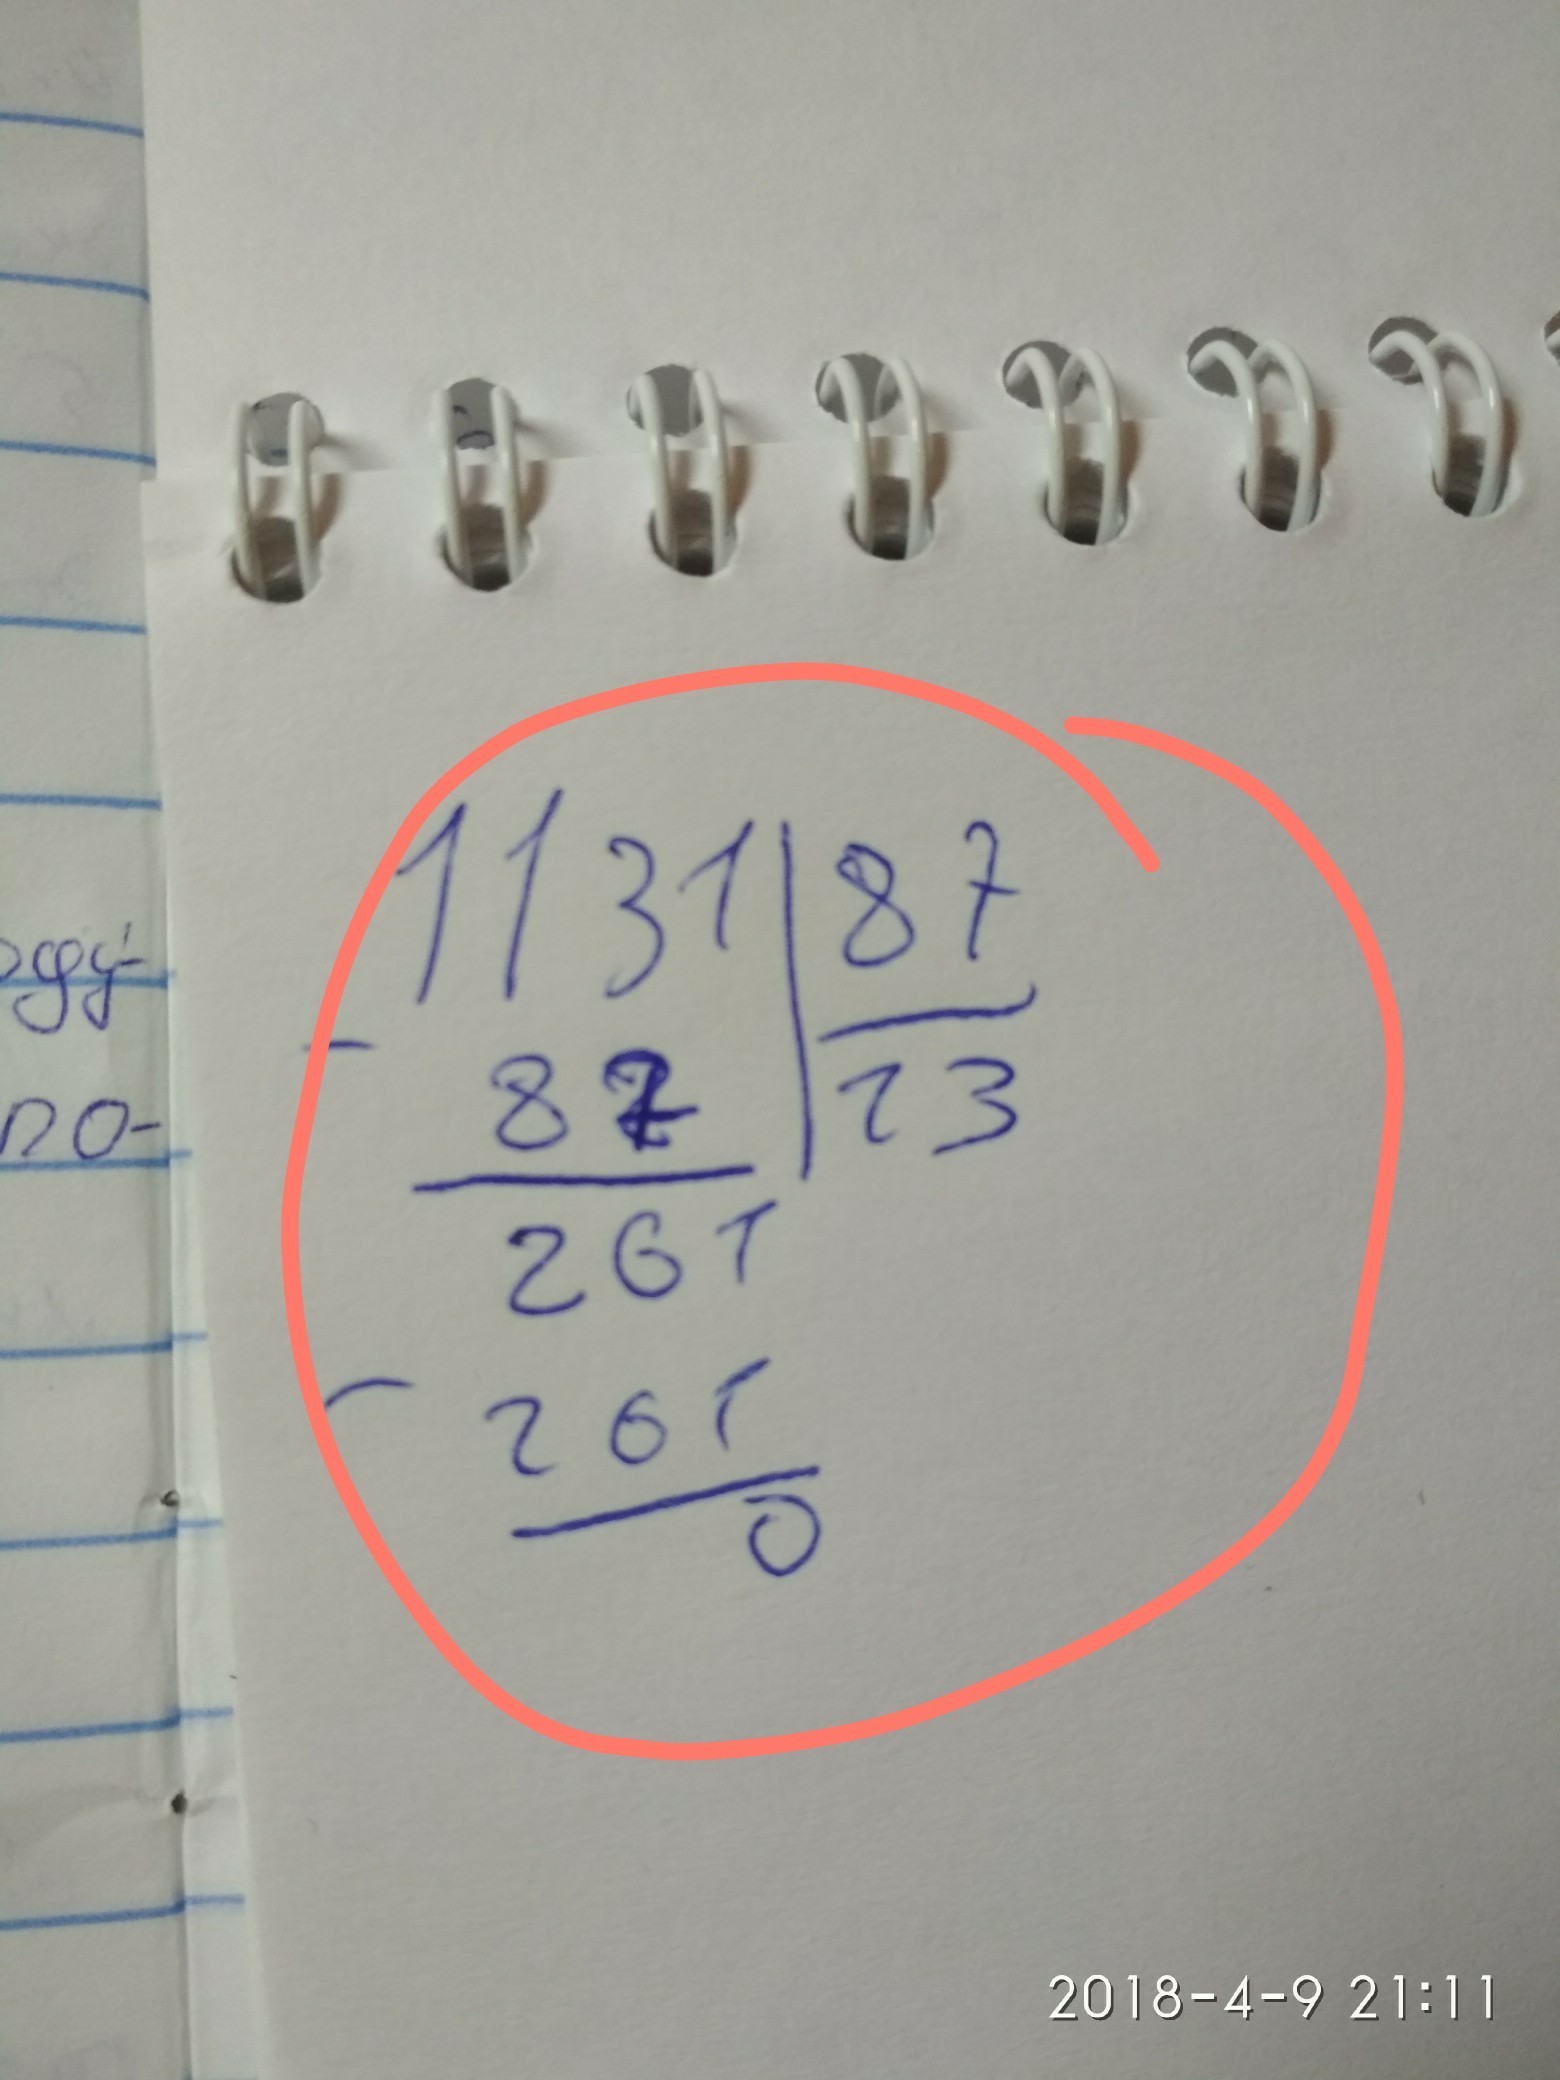 1131 87
- 87 13
261
- 261
0
по-
2018-4-9 21:11